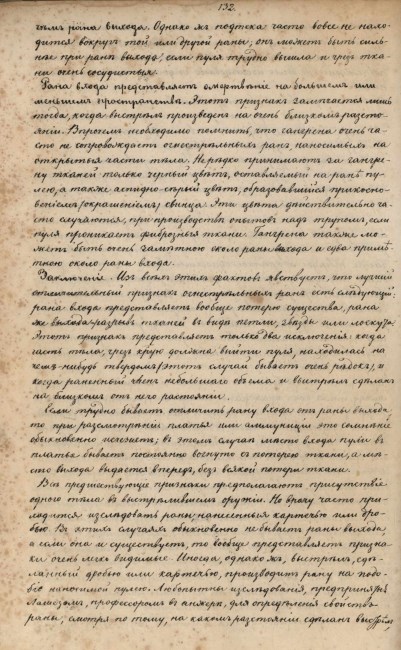 132.
тѣмъ рана выхода. Однако жъ подтека часто вовсе не нахо-
дится вокругъ той или другой раны; онъ можетъ быть силь-
нѣе при ранѣ выхода, если пуля трудно вышла и чрезъ тка-
ни очень сосудистыя.
Рана входа представляетъ омертвѣніе на большемъ или
меньшемъ пространствѣ. Этотъ признакъ замѣчается лишь
тогда, когда выстрѣлъ произведенъ на очень близкомъ разсто-
яніи. Впрочемъ необходимо помнить, что гангрена очень ча-
сто не сопровождаетъ огнестрѣльныхъ ранъ, наносимыхъ на
открытыя части тѣла. Нерѣдко принимаютъ за гангре-
ну тканей только черный цвѣтъ, оставляемый на ранѣ пу-
лею, а также аспидно-сѣрый цвѣтъ, образовавшійся прикосно-
веніемъ (окрашеніемъ) свинца. Эти цвѣта дѣйствительно ча-
сто случаются, при производствѣ опытовъ надъ трупомъ, если
пуля проникаетъ фиброзныя ткани. Гангрена также мо-
жетъ быть очень замѣтною около раны входа и едва примѣ-
тною около раны входа.
Заключеніе. Изъ всѣхъ этихъ фактовъ явствуетъ, что лучшій
отличительный признакъ огнестрѣльныхъ ранъ есть слѣдующій:
рана входа представляетъ вообще потерю существа, рана
же выхода разрывъ тканей въ видѣ петли, звѣзды или лоскута.
Этотъ признакъ представляетъ только два исключенія: когда
часть тѣла, чрезъ кою должна выйти пуля, находилась на
чемъ нибудь твердомъ (этотъ случай бываетъ очень рѣдокъ), и
когда раненный членъ небольшаго объема и выстрѣлъ сдѣланъ
на близкомъ отъ него разстояніи.
Если трудно бываетъ отличить рану входа отъ раны выхода
то при разсмотрѣніи платья или амуниціи это сомнѣніе
обыкновенно исчезаетъ; въ этомъ случаѣ мѣсто входа пули въ
платье бываетъ постоянно вогнуто съ потерею ткани, а мѣ-
сто выхода выдается впередъ, безъ всякой потери ткани.
Всѣ предшествующіе признаки предполагаютъ присутствіе
одного тѣла въ выстрѣлившемъ оружіи. Но врачу часто при-
ходится изслѣдовать раны, нанесенныя картечью или дро-
бью. Въ этихъ случаяхъ обыкновенно не бываетъ раны выхода,
а если она и существуетъ, то вообще представляетъ призна-
ки очень легко видимые. Иногда, однако жъ, выстрѣлъ, сдѣ-
ланный дробью или картечью, производитъ рану на подо-
біе наносимой пулею. Любопытны изслѣдованія, предпринятыя
Лашезомъ, профессоромъ въ анжерѣ, для опредѣленія свойства
раны, смотря по тому, на какомъ разстояніи сдѣланъ выстрѣлъ,